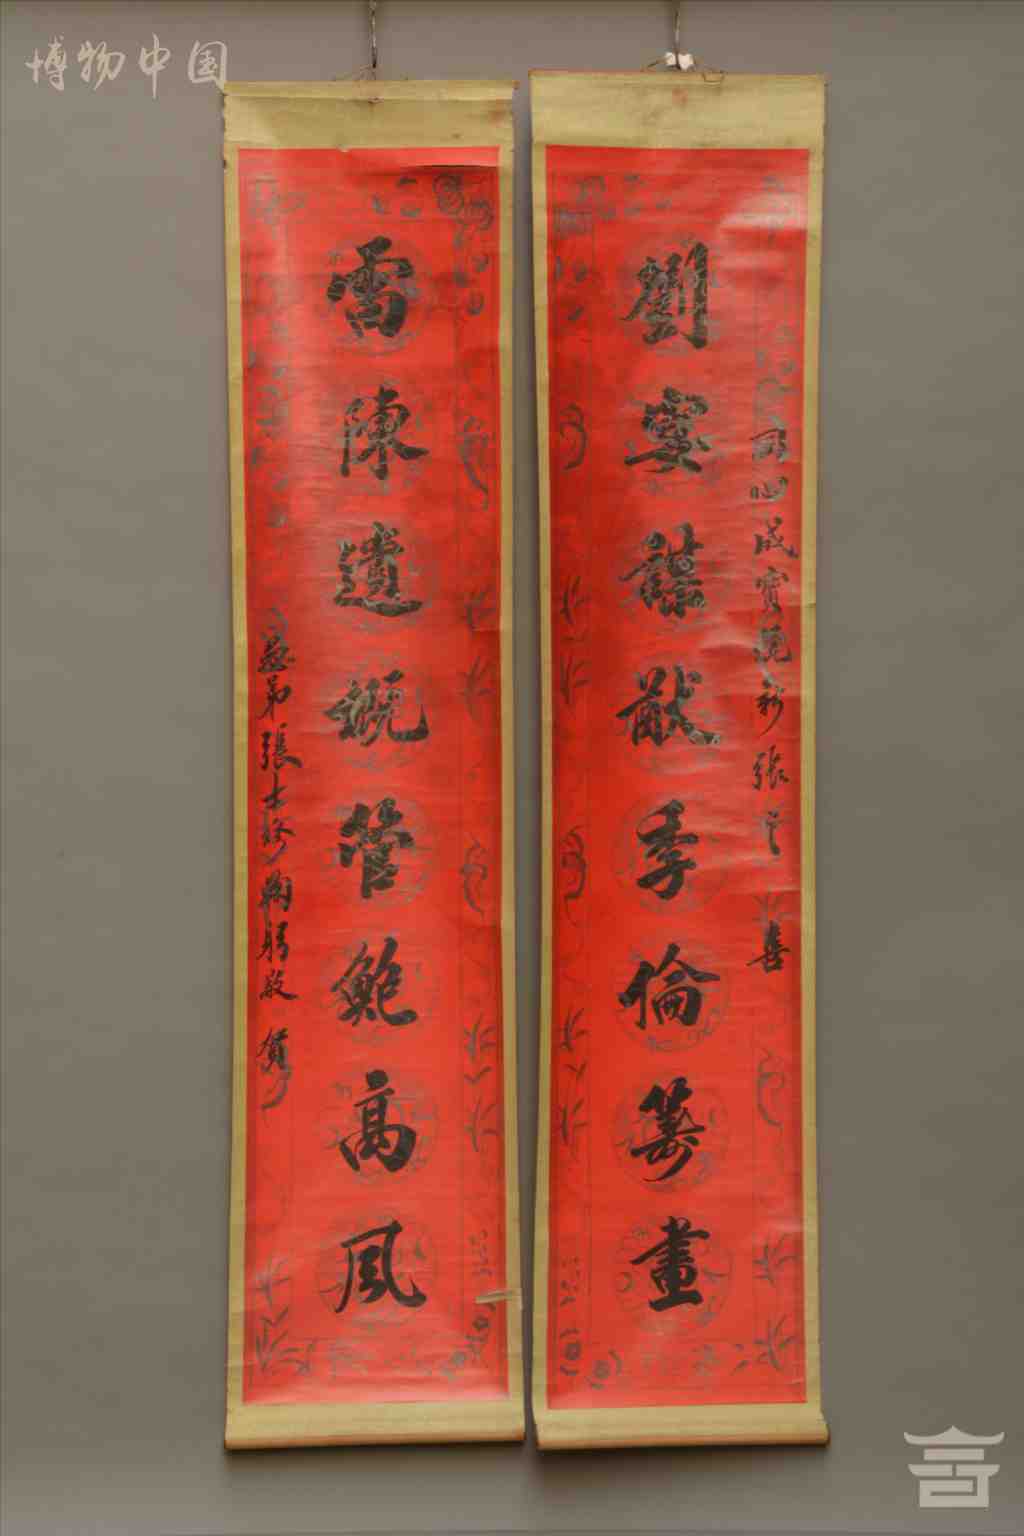 博物中国
同心成寶號新張之喜
劉晏謀猷季倫籌畫
雷陳遺㮣管鮑高風
愚弟張士珍鞠躬敬賀